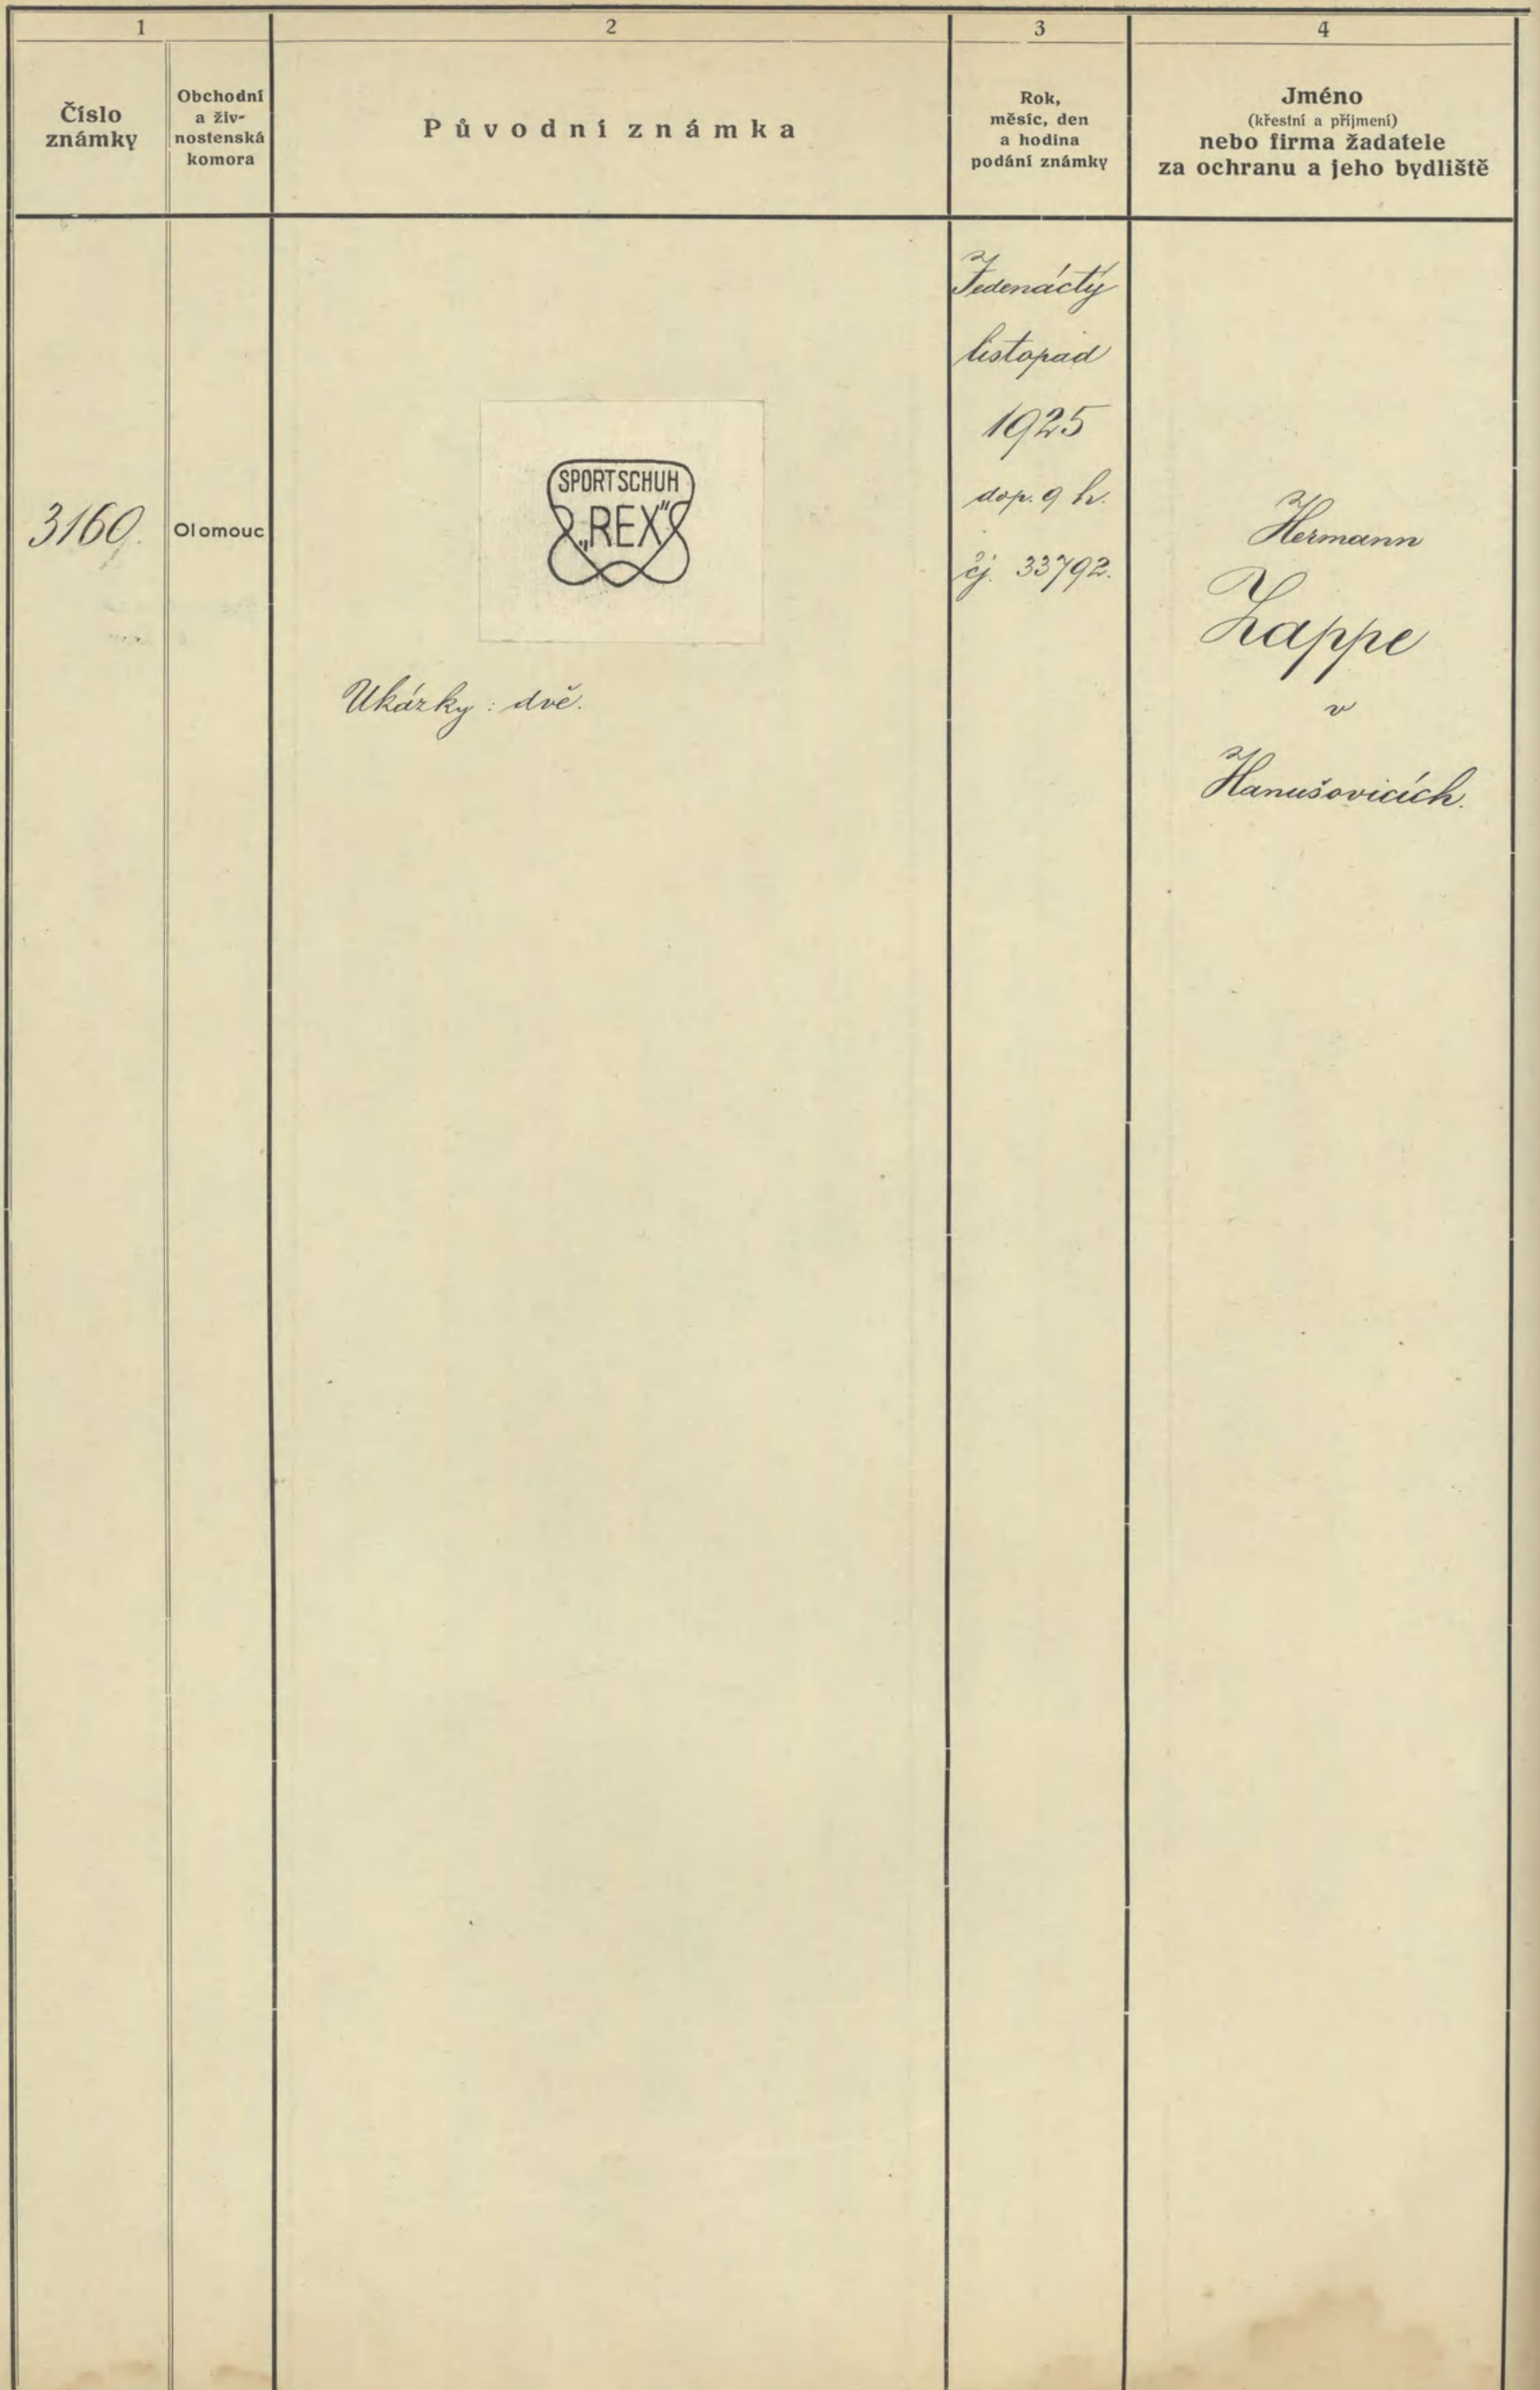 1
2
3
4
Číslo
známky
Obchodní
a živ-
nostenská
komora
Původní známka
Rok,
měsíc, den
a hodina
podání známky
Jméno
(křestní a příjmení)
nebo firma žadatele
za ochranu a jeho bydliště
3160.
Olomouc
SPORTSCHUH
„REX“
Ukázky: dvě.
Jedenáctý
listopad
1925
dop. 9 h.
čj. 33792.
Hermann
Zappe
v
Hanušovicích.